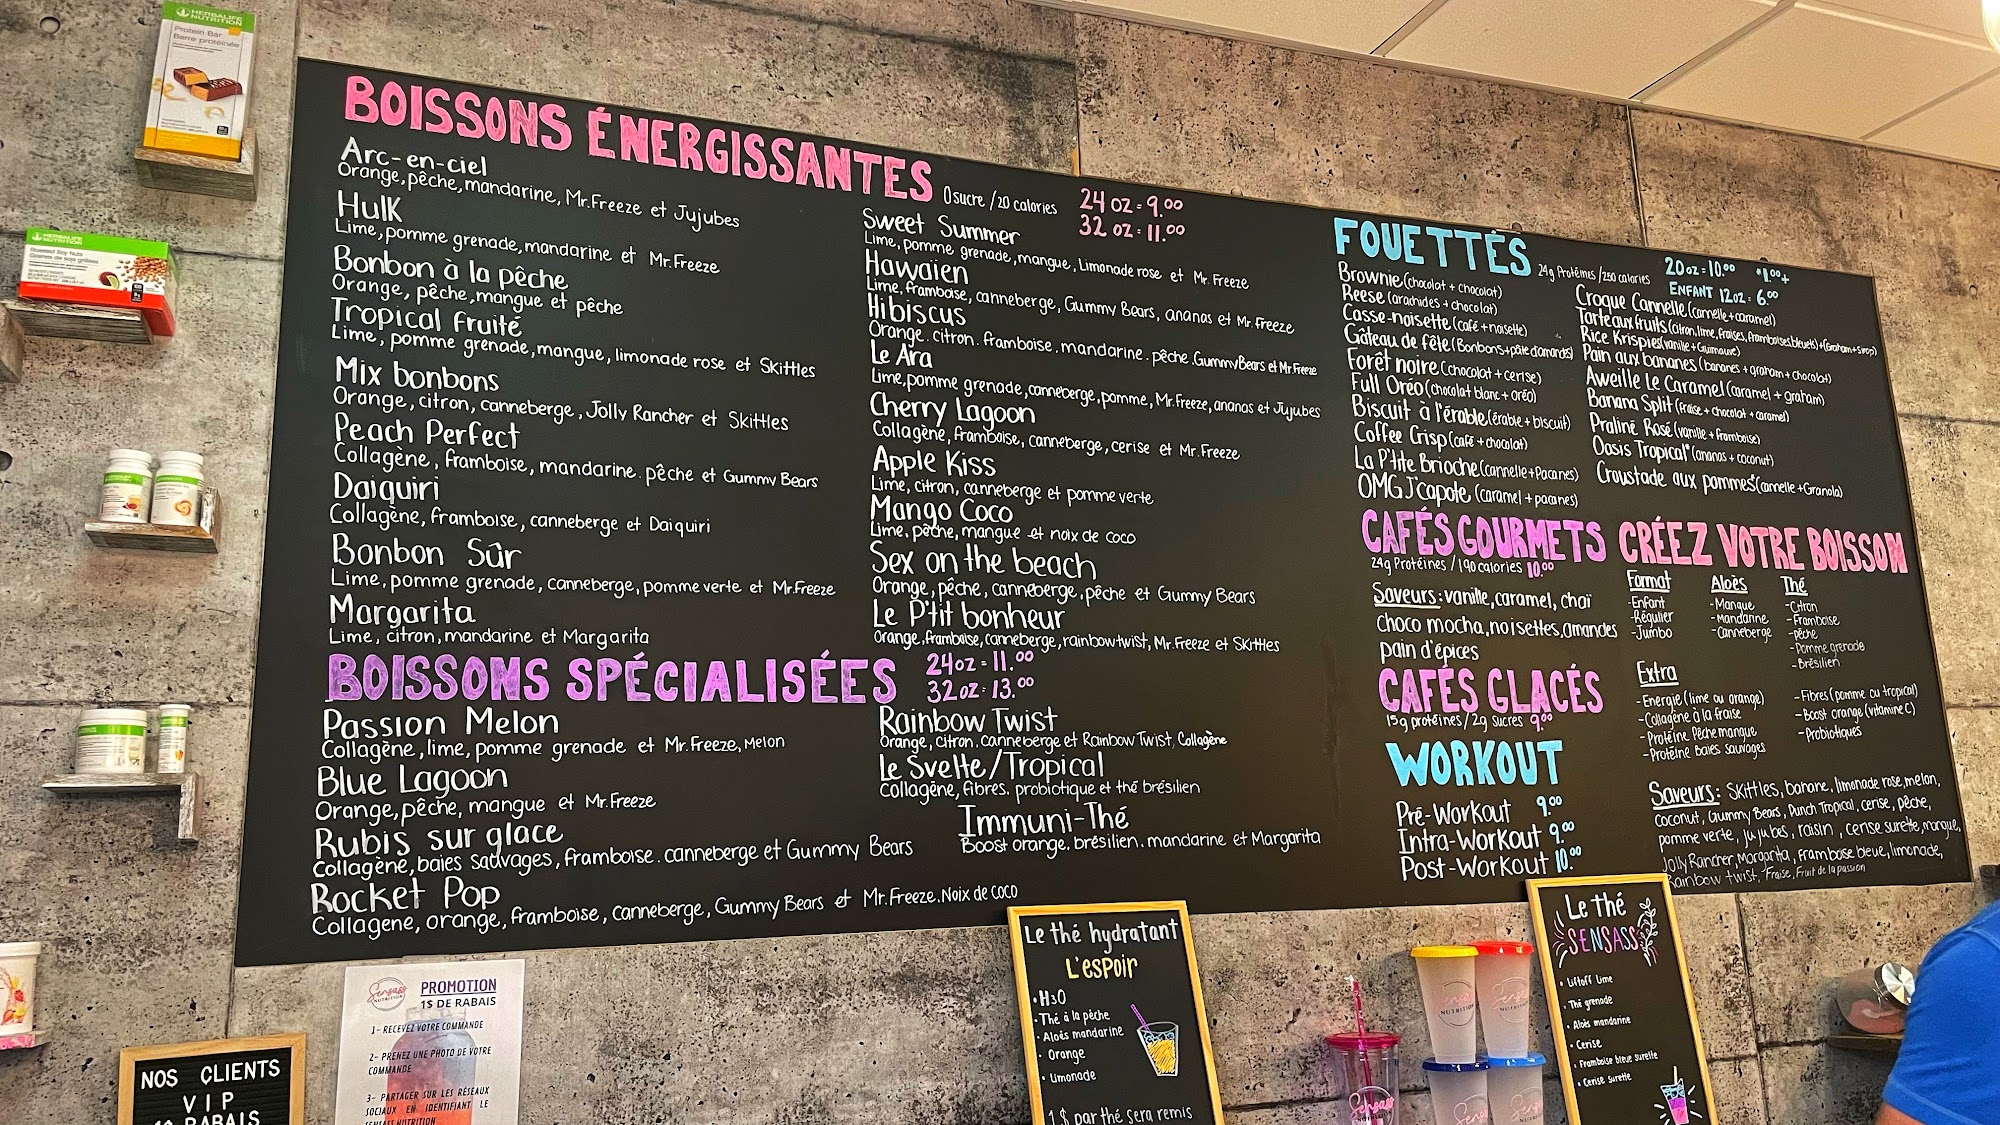 HERBALIFE
NUTRITION
Protein Bar
Barre protéinée
HERBALIFE
NUTRITION
Roasted Soy Nuts
BOISSONS ÉNERGISSANTES
0 sucre / 20 calories
24 oz = 9.00
32 oz = 11.00
Arc-en-ciel
Orange, pêche, mandarine, Mr.Freeze et Jujubes
Hulk
Lime, pomme grenade, mandarine et Mr.Freeze
Bonbon à la pêche
Orange, pêche, mangue et pêche
Tropical fruité
Lime, pomme grenade, mangue, limonade rose et Skittles
Mix bonbons
Orange, citron, canneberge, Jolly Rancher et Skittles
Peach Perfect
Collagène, framboise, mandarine. pêche et Gummy Bears
Daiquiri
Collagène, framboise, canneberge et Daiquiri
Bonbon Sûr
Lime, pomme grenade, canneberge, pomme verte et Mr.Freeze
Margarita
Lime, citron, mandarine et Margarita
Sweet Summer
Lime, pomme grenade, mangue, Limonade rose et Mr. Freeze
Hawaïen
Lime, framboise, canneberge, Gummy Bears, ananas et Mr. Freeze
Hibiscus
Orange. citron. framboise. mandarine. pêche. Gummy Bears et Mr. Freeze
Le Ara
Lime, pomme grenade, canneberge, pomme, Mr.Freeze, ananas et Jujubes
Cherry Lagoon
Collagène, framboise, canneberge, cerise et Mr.Freeze
Apple Kiss
Lime, citron, canneberge et pomme verte
Mango Coco
Lime. pêche, mangue et noix de coco
Sex on the beach
Orange, pêche, canneberge, pêche et Gummy Bears
Le P'tit bonheur
Orange, framboise, canneberge, rainbow twist, Mr. Freeze et Skittles
BOISSONS SPÉCIALISÉES
24 oz = 11.00
32 oz = 13.00
Passion Melon
Collagène, lime, pomme grenade et Mr.Freeze, Melon
Blue Lagoon
Orange, pêche, mangue et Mr.Freeze
Rubis sur glace
Collagène, baies sauvages, framboise. canneberge et Gummy Bears
Rocket Pop
Collagene, orange, framboise, canneberge, Gummy Bears et Mr. Freeze. Noix de coco
Rainbow Twist
Orange, citron. canneberge et Rainbow Twist, Collagène
Le Svelte/Tropical
Collagène, fibres. probiotique et thé brésilien
Immuni-Thé
Boost orange. brésilien. mandarine et Margarita
FOUETTÉS
24g Protéines / 250 calories
20 oz = 10.00 *1.00+
ENFANT 12oz = 6.00
Brownie (chocolat + chocolat)
Reese (arachides + chocolat)
Casse-noisette (café + noisette)
Gâteau de fête (Bonbons + pâte d'amandes)
Forêt noire (chocolat + cerise)
Full Oréo (chocolat blanc + oréo)
Biscuit à l'érable (érable + biscuit)
Coffee Crisp (café + chocolat)
La P'tite Brioche (cannelle + Pacanes)
OMG J'capote, (caramel + pacanes)
Croque Cannelle (cannelle + caramel)
Tarte aux fruits (citron, lime, fraises, framboises, bleuets) + (Graham + sirop)
Rice Krispies (vanille + Guimauve)
Pain aux bananes (bananes + graham + chocolat)
Aweille Le Caramel (caramel + graham)
Banana Split (fraise + chocolat + caramel)
Praliné Rosé (vanille + framboise)
Oasis Tropical* (ananas + coconut)
Croustade aux pommes* (cannelle + Granola)
CAFÉS GOURMETS
24g Protéines / 190 calories 10.00
Saveurs: vanille, caramel, chaï
choco mocha, noisettes, amandes
pain d'épices
CAFÉS GLACÉS
15g protéines / 2g sucres 9.00
WORKOUT
Pré-Workout 9.00
Intra-Workout 9.00
Post-Workout 10.00
CRÉEZ VOTRE BOISSON
Format
-Enfant
-Régulier
-Jumbo
Aloès
-Mangue
-Mandarine
-Canneberge
Thé
-Citron
-Framboise
-pêche
-Pomme grenade
-Brésilien
Extra
-Energie (lime ou orange)
-Collagène à la fraise
-Protéine Pêche mangue
-Protéine Baies sauvages
-Fibres (pomme ou tropical)
-Boost orange (vitamine C)
-Probiotiques
Saveurs: Skittles, banane, limonade rose, melon,
Coconut, Gummy Bears, Punch Tropical, cerise, pêche,
pomme verte, jujubes, raisin, cerise surette, mangue,
Jolly Rancher, Margarita, framboise bleue, limonade,
Rainbow twist, Fraise, Fruit de la passion
NOS CLIENTS
VIP
RABAIS
Sensass
NUTRITION
PROMOTION
1$ DE RABAIS
1- RECEVEZ VOTRE COMMANDE
2- PRENEZ UNE PHOTO DE VOTRE
COMMANDE
3- PARTAGER SUR LES RÉSEAUX
SOCIAUX EN IDENTIFIANT LE
SENSASS NUTRITION
Le thé hydratant
L'espoir
• H3O
• Thé à la pêche
• Aloès mandarine
• Orange
• Limonade
1 $ par thé sera remis
Le thé
SENSASS
• Liftoff Lime
• Thé grenade
• Aloès mandarine
• Cerise
• Framboise bleue surette
• Cerise surette
Sensass
NUTRITION
Sensass
NUTRITION
Sensass
Sensass
Sensass